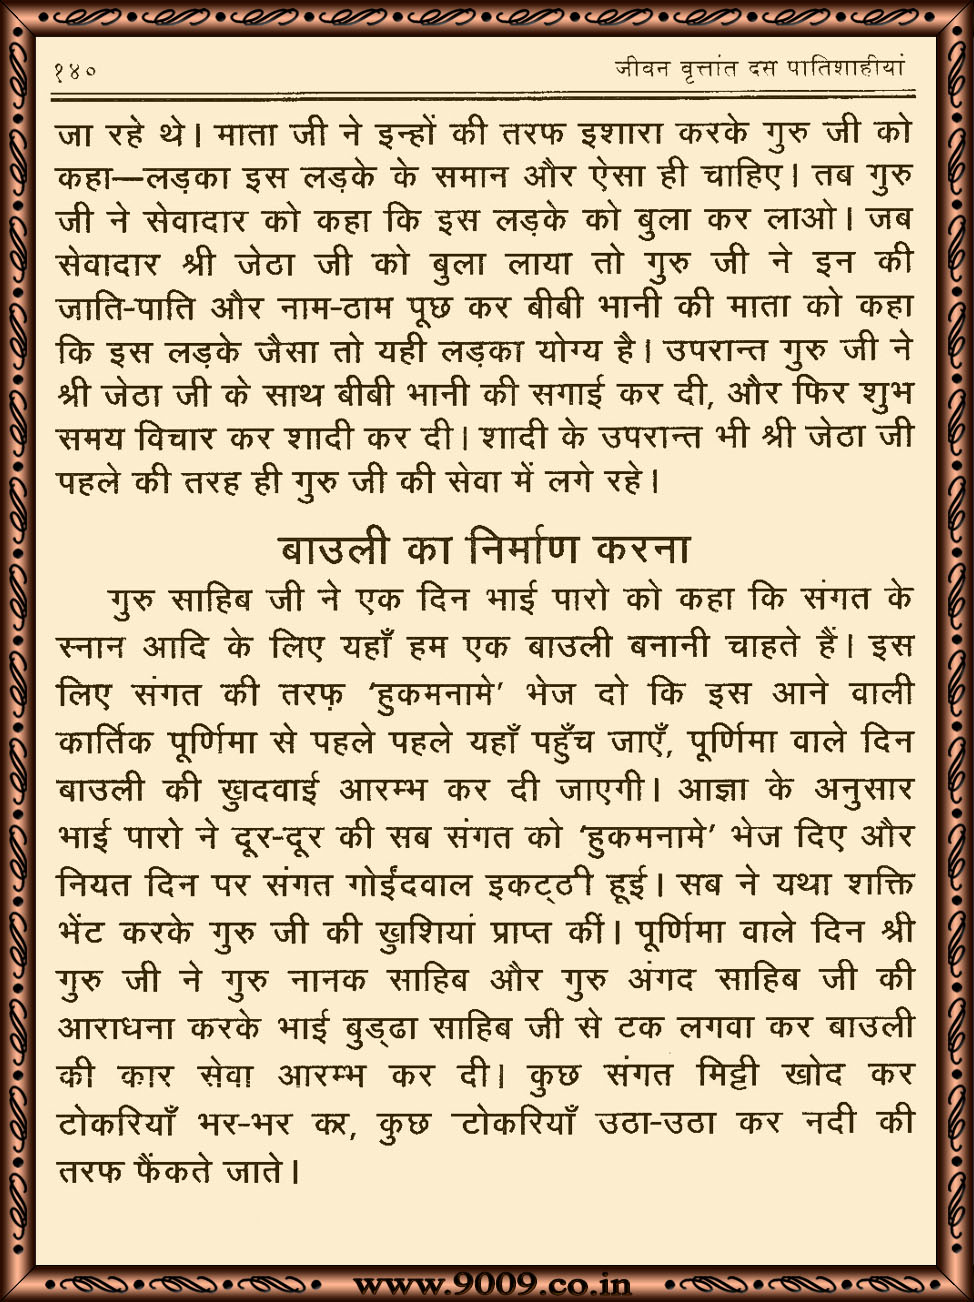 १४०
जीवन वृत्तांत दस पातिशाहीयां
जा रहे थे। माता जी ने इन्हों की तरफ इशारा करके गुरु जी को
कहा—लड़का इस लड़के के समान और ऐसा ही चाहिए। तब गुरु
जी ने सेवादार को कहा कि इस लड़के को बुला कर लाओ। जब
सेवादार श्री जेठा जी को बुला लाया तो गुरु जी ने इन की
जाति-पाति और नाम-ठाम पूछ कर बीबी भानी की माता को कहा
कि इस लड़के जैसा तो यही लड़का योग्य है। उपरान्त गुरु जी ने
श्री जेठा जी के साथ बीबी भानी की सगाई कर दी, और फिर शुभ
समय विचार कर शादी कर दी। शादी के उपरान्त भी श्री जेठा जी
पहले की तरह ही गुरु जी की सेवा में लगे रहे।
बाउली का निर्माण करना
गुरु साहिब जी ने एक दिन भाई पारो को कहा कि संगत के
स्नान आदि के लिए यहाँ हम एक बाउली बनानी चाहते हैं। इस
लिए संगत की तरफ़ ‘हुकमनामे’ भेज दो कि इस आने वाली
कार्तिक पूर्णिमा से पहले पहले यहाँ पहुँच जाएँ, पूर्णिमा वाले दिन
बाउली की खुदवाई आरम्भ कर दी जाएगी। आज्ञा के अनुसार
भाई पारो ने दूर-दूर की सब संगत को ‘हुकमनामे’ भेज दिए और
नियत दिन पर संगत गोईंदवाल इकट्ठी हूई। सब ने यथा शक्ति
भेंट करके गुरु जी की खुशियां प्राप्त कीं। पूर्णिमा वाले दिन श्री
गुरु जी ने गुरु नानक साहिब और गुरु अंगद साहिब जी की
आराधना करके भाई बुड्ढा साहिब जी से टक लगवा कर बाउली
की कार सेवा आरम्भ कर दी। कुछ संगत मिट्टी खोद कर
टोकरियाँ भर-भर कर, कुछ टोकरियाँ उठा-उठा कर नदी की
तरफ फैंकते जाते।
www.9009.co.in